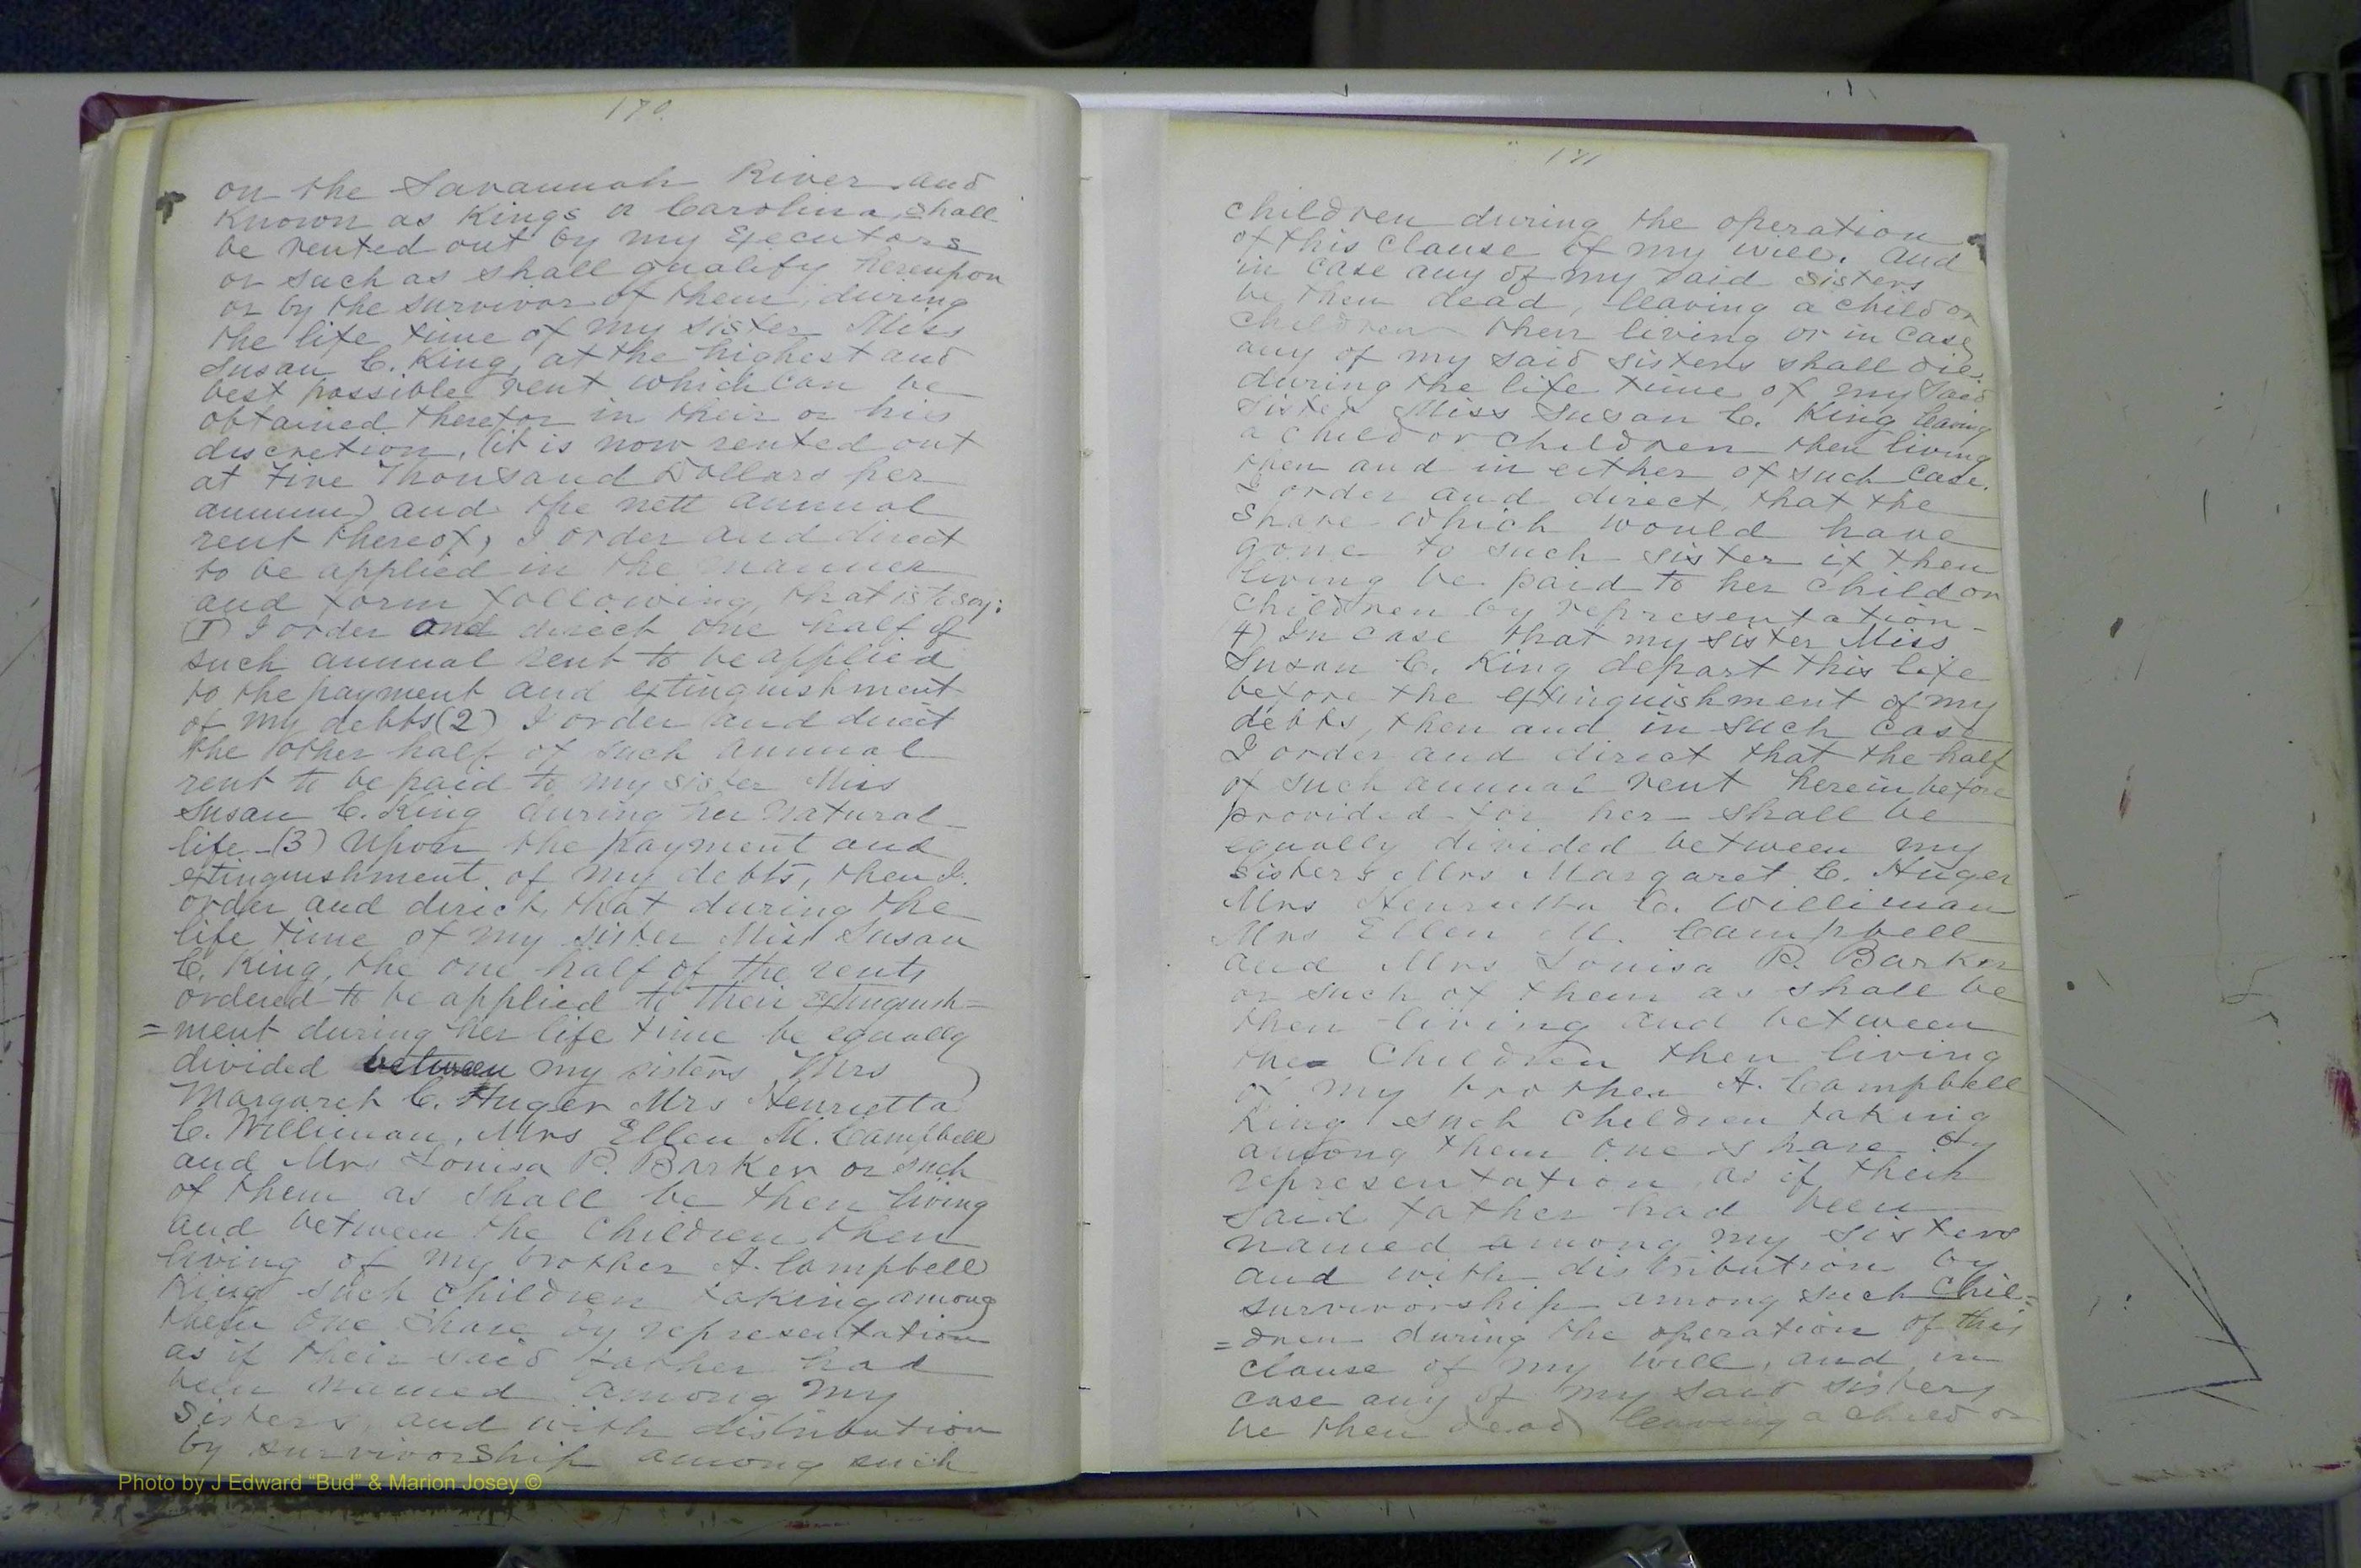 170.
on the Savannah River and
known as Kings or Carolina, shall
be rented out by my Executors
or such as shall qualify hereupon
or by the survivor of them, during
the life time of my sister Miss
Susan C. King, at the highest and
best possible rent which can be
obtained therefor in their or his
discretion, (it is now rented out
at Five Thousand Dollars per
annum) and the nett annual
rent thereof, I order and direct
to be applied in the manner
and form following, that is to say:
(1) I order and direct one half of
such annual rent to be applied
to the payment and extinguishment
of my debts (2) I order and direct
the other half of such annual
rent to be paid to my sister Miss
Susan C. King during her natural
life - (3) Upon the payment and
extinguishment of my debts, then I
order and direct, that during the
life time of my sister Miss Susan
C. King, the one half of the rents
ordered to be applied to their extinguish=
=ment during her life time be equally
divided between my sisters Mrs
Margaret C. Huger Mrs Henrietta
C. Williman, Mrs Ellen M. Campbell
and Mrs Louisa P. Barker or such
of them as shall be then living
and between the children then
living of my brother A. Campbell
King such children taking among
them one share by representation
as if their said father had
been named among my
Sisters, and with distribution
by survivorship among such
171
children during the operation
of this clause of my will. And
in case any of my said sisters
be then dead, leaving a child or
children then living or in case
any of my said sisters shall die
during the life time of my said
sister Miss Susan C. King leaving
a child or children then living
then and in either of such case.
I order and direct, that the
share which would have
gone to such sister if then
living be paid to her child or
children by representation -
4) In case that my sister Miss
Susan C. King depart this life
before the extinguishment of my
debts, then and in such case
I order and direct that the half
of such annual rent hereinbefore
provided for her shall be
equally divided between my
Sisters Mrs Margaret C. Huger
Mrs Henrietta C. Williman
Mrs Ellen M. Campbell
and Mrs Louisa P. Barker
or such of them as shall be
then living and between
the children then living
of my brother A. Campbell
King such children taking
among them one share by
representation as if their
said father had been
named among my sisters
and with distribution by
survivorship among such chil=
=dren during the operation of this
clause of my will, and in
case any of my said sisters
be then dead leaving a child or
Photo by J Edward “Bud” & Marion Josey ©